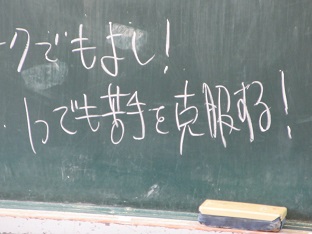 クでもよし!
1つでも苦手を克服する!